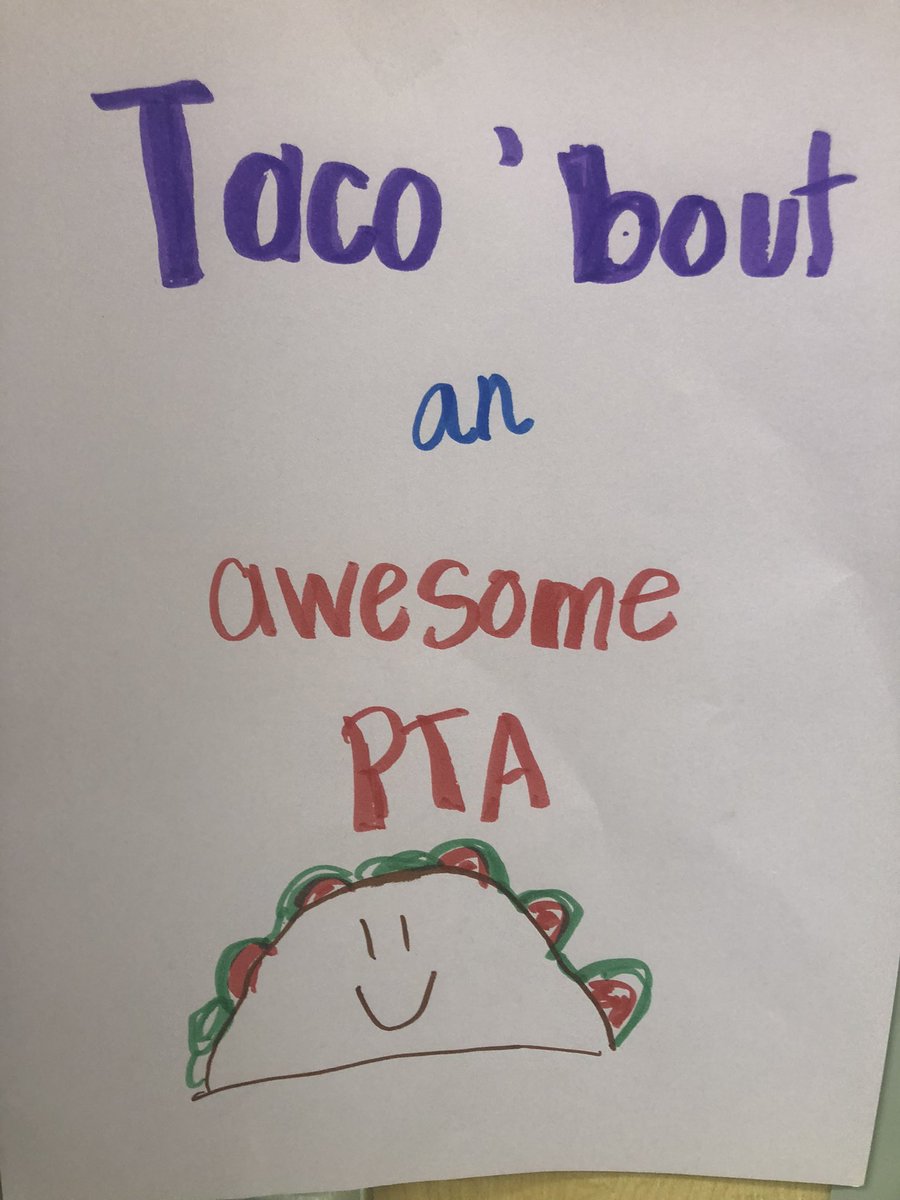 Taco 'bout
an
awesome
PTA